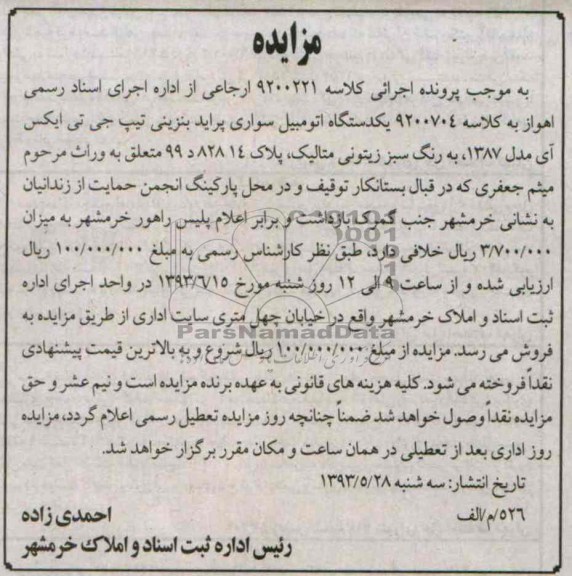 مزایده
به موجب پرونده اجرائی کلاسه ۹۲۰۰۲۲۱ ارجاعی از اداره اجرای اسناد رسمی
اهواز به کلاسه ۹۲۰۰۷۰۴ یکدستگاه اتومبیل سواری پراید بنزینی تیپ جی تی ایکس
آی مدل ۱۳۸۷، به رنگ سبز زیتونی متالیک، پلاک ۱۴ ۸۲۸ د ۹۹ متعلق به وراث مرحوم
میثم جعفری که در قبال بستانکار توقیف و در محل پارکینگ انجمن حمایت از زندانیان
به نشانی خرمشهر جنب گمرک بازداشت و برابر اعلام پلیس راهور خرمشهر به میزان
۳/۷۰۰/۰۰۰ ریال خلافی دارد، طبق نظر کارشناس رسمی به مبلغ ۱۰۰/۰۰۰/۰۰۰ ریال
ارزیابی شده و از ساعت ۹ الی ۱۲ روز شنبه مورخ ۱۳۹۳/۶/۱۵ در واحد اجرای اداره
ثبت اسناد و املاک خرمشهر واقع در خیابان چهل متری سایت اداری از طریق مزایده به
ParsNamadData
فروش می رسد. مزایده از مبلغ ۱۰۰/۰۰۰/۰۰۰ ریال شروع و به بالاترین قیمت پیشنهادی
نقداً فروخته می شود. کلیه هزینه های قانونی به عهده برنده مزایده است و نیم عشر و حق
مزایده نقداً وصول خواهد شد ضمناً چنانچه روز مزایده تعطیل رسمی اعلام گردد، مزایده
روز اداری بعد از تعطیلی در همان ساعت و مکان مقرر برگزار خواهد شد.
تاریخ انتشار: سه شنبه ۱۳۹۳/۵/۲۸
۵۲۶/م/الف
احمدی زاده
رئیس اداره ثبت اسناد و املاک خرمشهر